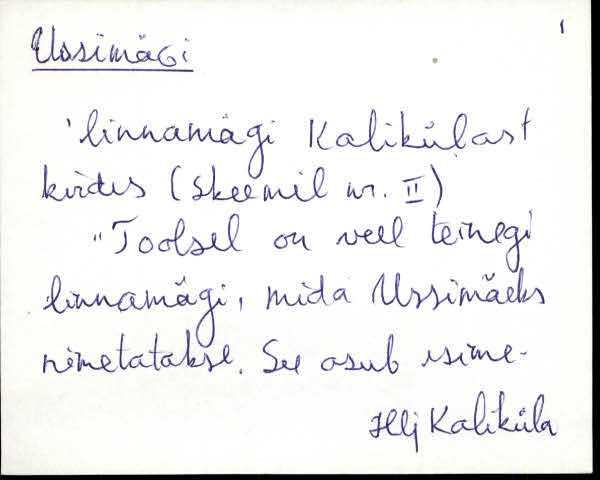 1
Ussimägi
'linnamägi Kaliküḷast
kirdes (skeemil nr. II)
"Toolsel on veel teinegi
linnamägi, mida Ussimäeks
nimetatakse. See asub esime-
Hlj Kaliküla